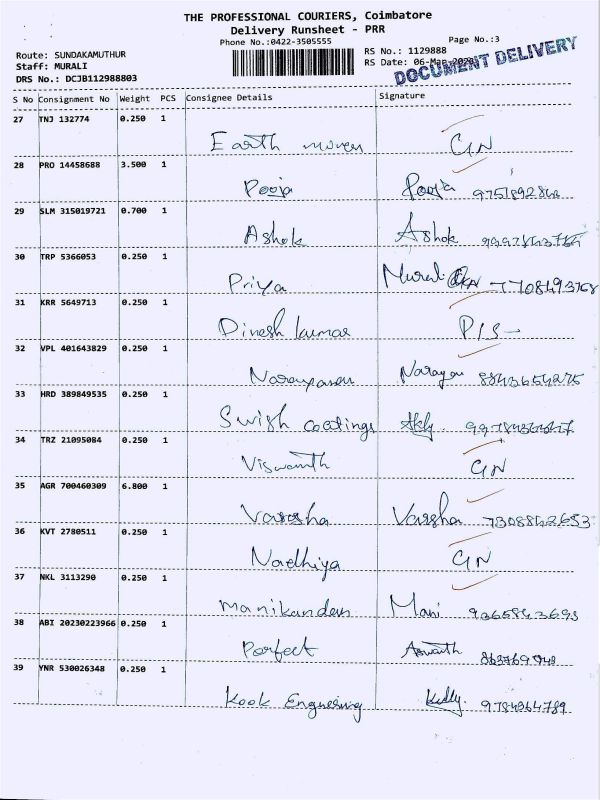 THE PROFESSIONAL COURIERS, Coimbatore
Delivery Runsheet - PRR
Phone No.:0422-3505555
Page No.:3
Route: SUNDAKAMUTHUR
RS No.: 1129888
Staff: MURALI
RS Date: 06-Mar
DOCUMENT DELIVERY
DRS No.: DCJB112988803
S No Consignment No Weight PCS Consignee Details Signature
27 TNJ 132774 0.250 1
Earth movers GN
28 PRO 14458688 3.500 1
Pooja Pooja
29 SLM 315019721 0.700 1
Ashok Ashok
30 TRP 5366053 0.250 1
Priya Murali 7708493768
31 KRR 5649713 0.250 1
Dinesh kumar
32 VPL 401643829 0.250 1
Narayanan Narayan 8843654275
33 HRD 389849535 0.250 1
Swish coatings
34 TRZ 21095084 0.250 1
Viswanth GN
35 AGR 700460309 6.800 1
Varsha Varsha 7308842653
36 KVT 2780511 0.250 1
Nadhiya GN
37 NKL 3113290 0.250 1
Manikanden Mani 9365843693
38 ABI 20230223966 0.250 1
Perfect Aswath
39 YNR 530026348 0.250 1
Kook Engnering 9784364789